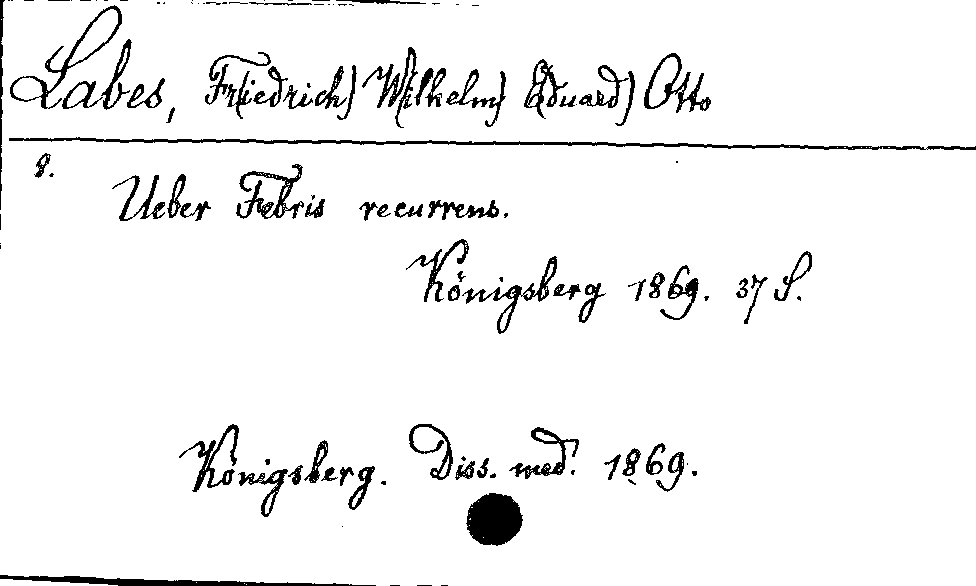 Labes, Fr(iedrich) W(ilhelm) E(duard) Otto
8.
Ueber Febris recurrens.
Königsberg 1869. 37 S.
Königsberg. Diss. med. 1869.